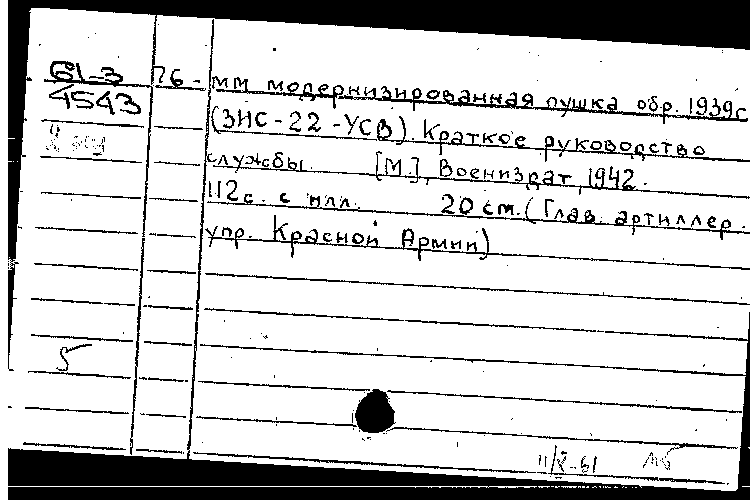 61-3 76-мм модернизированная пушка обр. 1939г
4543 (ЗИС-22-УСВ). Краткое руководство
службы. [М.], Воениздат, 1942.
112с. с илл. 20 см. (Глав. артиллер.
упр. Красной Армии)
5
11/X-61